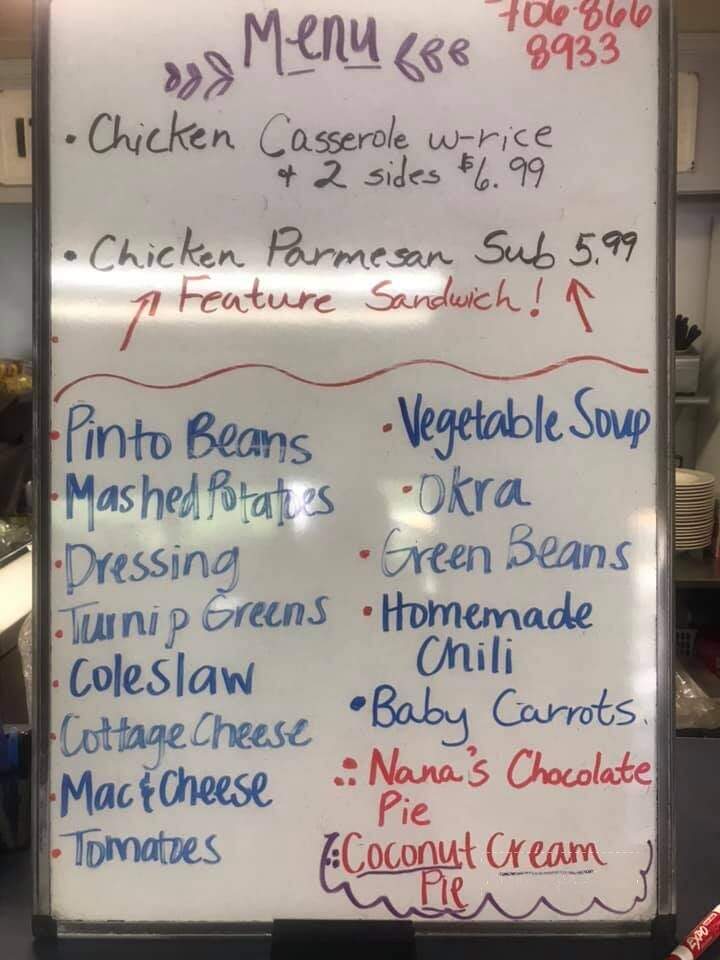 706-866
8933
Menu
• Chicken Casserole w-rice
+ 2 sides $6.99
• Chicken Parmesan Sub 5.99
Feature Sandwich!
• Pinto Beans
• Mashed Potatoes
• Dressing
• Turnip Greens
• Coleslaw
• Cottage Cheese
• Mac & Cheese
• Tomatoes
• Vegetable Soup
• Okra
• Green Beans
• Homemade
Chili
• Baby Carrots.
Nana's Chocolate
Pie
Coconut Cream
Pie
EXPO